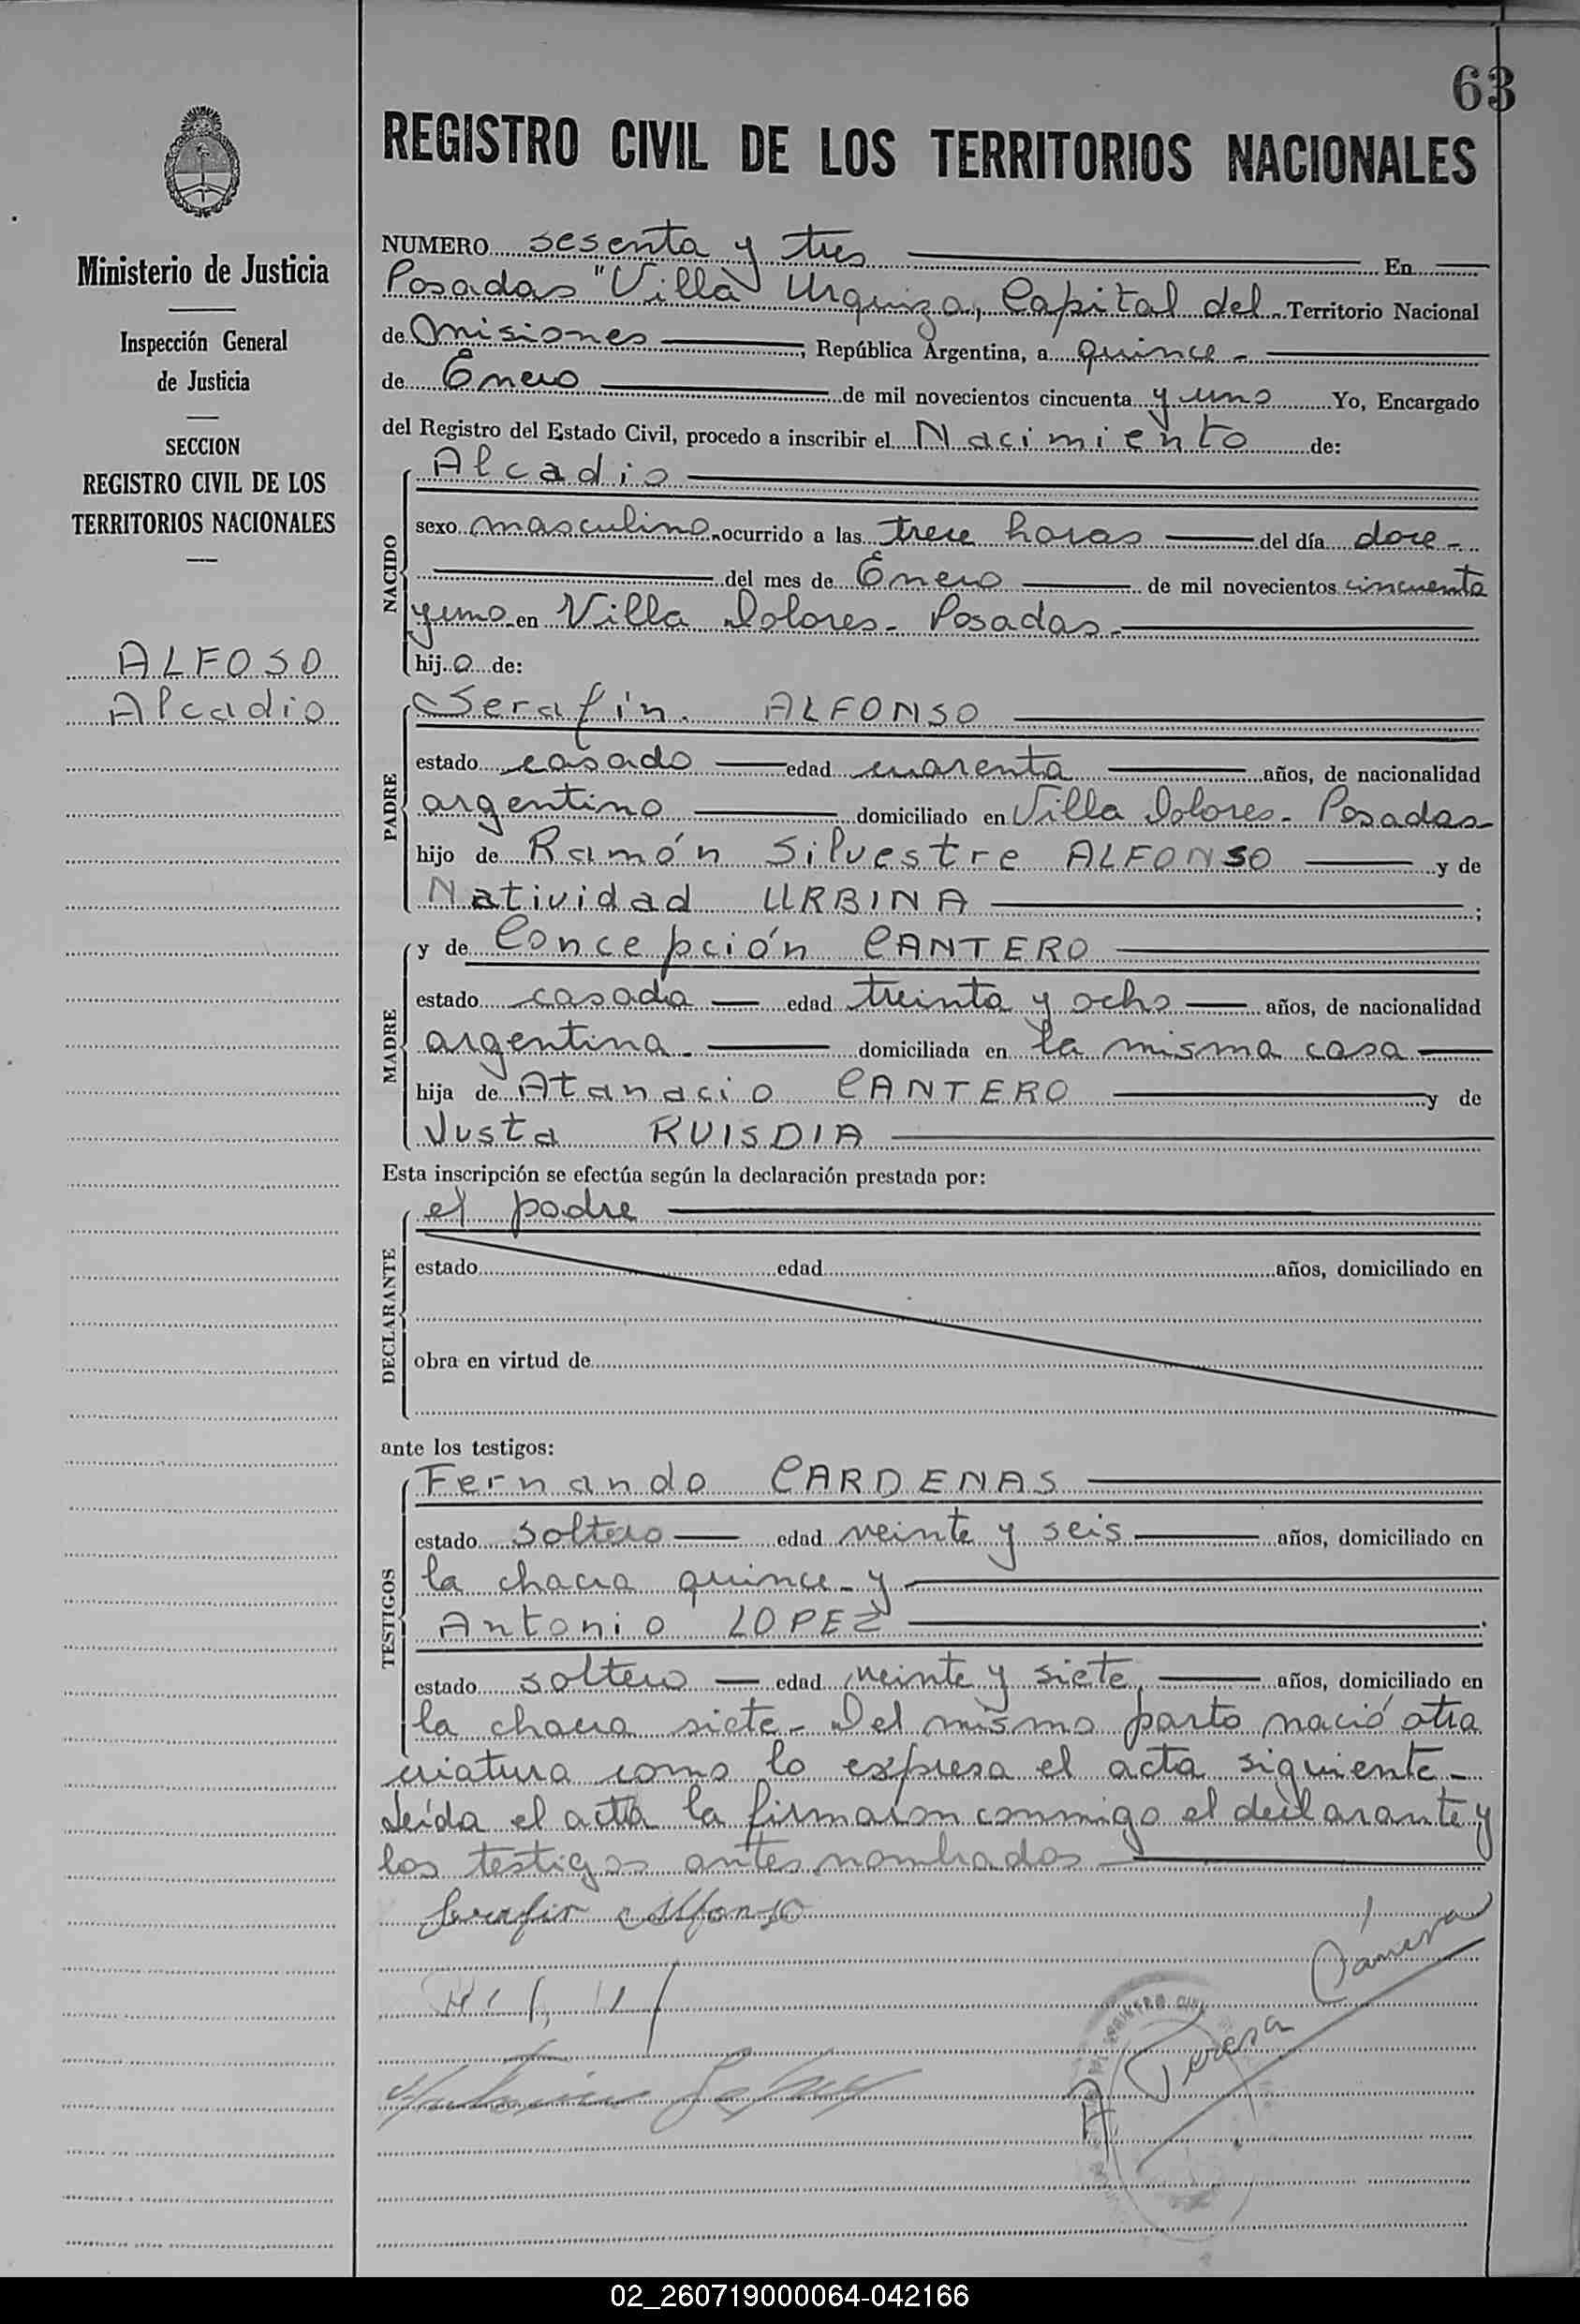 63
REGISTRO CIVIL DE LOS TERRITORIOS NACIONALES
Ministerio de Justicia
Inspección General
de Justicia
SECCION
REGISTRO CIVIL DE LOS
TERRITORIOS NACIONALES
ALFOSO
Alcadio
NUMERO sesenta y tres En
Posadas "Villa Urquiza, Capital del Territorio Nacional
de Misiones, República Argentina, a quince -
de Enero de mil novecientos cincuenta y uno Yo, Encargado
del Registro del Estado Civil, procedo a inscribir el Nacimiento de:
NACIDO
Alcadio
sexo masculino ocurrido a las trece horas del día doce -
del mes de Enero de mil novecientos cincuenta
y uno en Villa Dolores - Posadas -
hijo de:
PADRE
Serafín ALFONSO
estado casado edad cuarenta años, de nacionalidad
argentino domiciliado en Villa Dolores - Posadas
hijo de Ramón Silvestre ALFONSO y de
Natividad URBINA ;
MADRE
y de Concepción CANTERO
estado casada edad treinta y ocho años, de nacionalidad
argentina - domiciliada en la misma casa
hija de Atanacio CANTERO y de
Justa RUISDIA
Esta inscripción se efectúa según la declaración prestada por:
DECLARANTE
el padre
estado edad años, domiciliado en
obra en virtud de
ante los testigos:
TESTIGOS
Fernando CARDENAS
estado soltero edad veinte y seis años, domiciliado en
la chacra quince - y
Antonio LOPEZ
estado soltero edad veinte y siete años, domiciliado en
la chacra siete - Del mismo parto nació otra
criatura como lo expresa el acta siguiente -
Leída el acta la firmaron conmigo el declarante y
los testigos antes nombrados
Serafin Alfonso
Antonio Lopez
Teresa Cámera
REGISTRO CIVIL
02_260719000064-042166